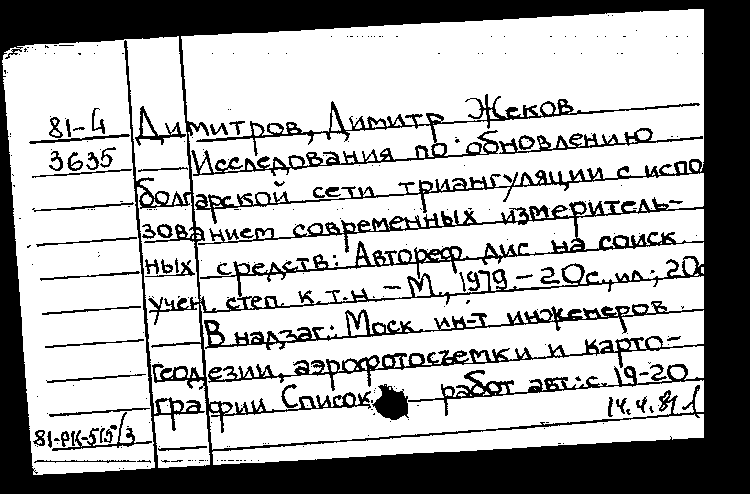 81-4 Димитров, Димитр Жеков.
3635 Исследования по обновлению
болгарской сети триангуляции с испо
зованием современных измеритель-
ных средств: Автореф. дис. на соиск.
учен. степ. к.т.н. - М., 1979. - 20с., ил.; 20с
В надзаг.: Моск. ин-т инженеров
геодезии, аэрофотосъемки и карто-
графии. Список работ авт.: с. 19-20
81-РК-515/3 14.4.81